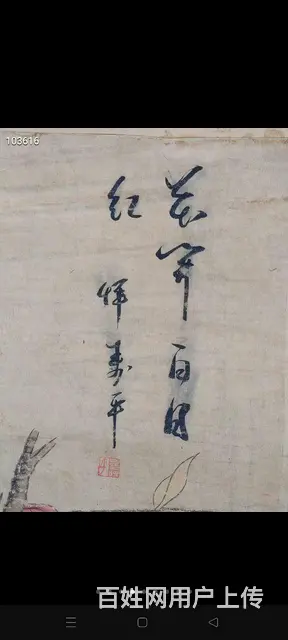 103616
花开百日
红
恽寿平
百姓网用户上传